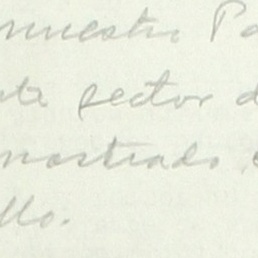 nuestro Pa
te sector d
mostrado e
llo.